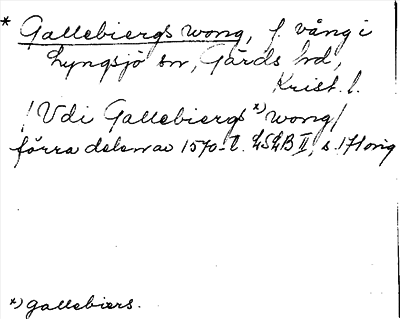 * Gallebiergs wong, f. vång i
Lyngsjö sn, Gärds hd,
Krist. l.
/Vdi Gallebiergs *) wong/
förra delen av 1570-t. LSLB II, s. 171 orig
*) gallebiers.